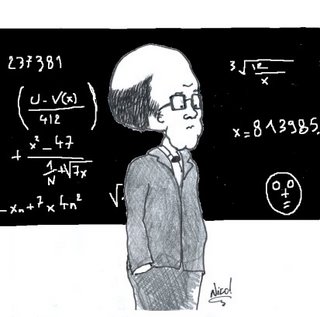 237381
(U - V(x) / 412)
+ x² - 47 / 1/N + √7x
- xₙ + 7 x 4n²
√
³√12 / x
x = 813985
Nicol